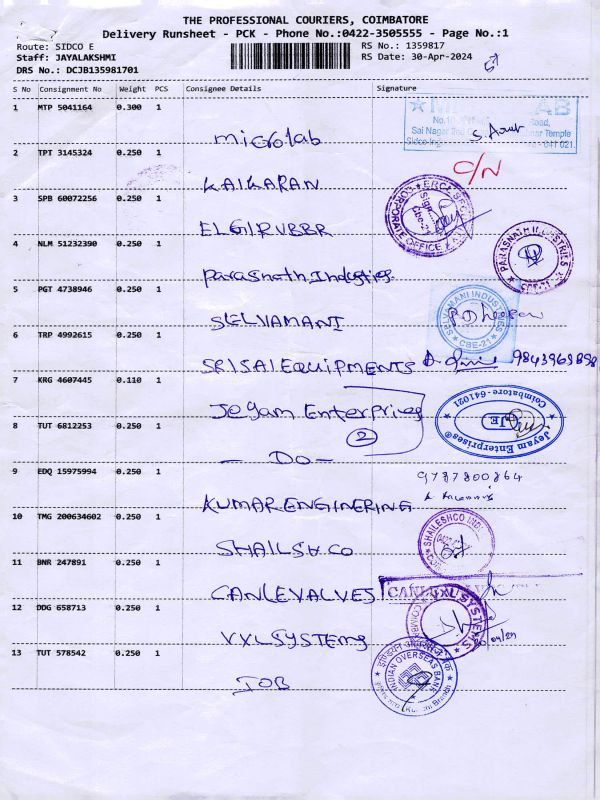 THE PROFESSIONAL COURIERS, COIMBATORE
Delivery Runsheet - PCK - Phone No.:0422-3505555 - Page No.:1
Route: SIDCO E
RS No.: 1359817
Staff: JAYALAKSHMI
RS Date: 30-Apr-2024
DRS No.: DCJB135981701
S No Consignment No Weight PCS Consignee Details Signature
1 MTP 5041164 0.300 1
microlab
2 TPT 3145324 0.250 1
C/N
KAIKARAN
3 SPB 60072256 0.250 1
CORPORATE OFFICE
Cbe-21
ELGIRUBBR
4 NLM 51232390 0.250 1
PARASNATH INDUSTRIES
Parasnath Industries
5 PGT 4738946 0.250 1
SELVAMANI INDUSTRIES
CBE-21
SELVAMANI
6 TRP 4992615 0.250 1
SRISAI EQUIPMENTS
7 KRG 4607445 0.110 1
Jeyam Enterprises
Jeyam Enterprises® Coimbatore-641021
JE
8 TUT 6812253 0.250 1
2
— Do —
9 EDQ 15975994 0.250 1
9787800864
KUMAR ENGINERING
10 TMG 200634602 0.250 1
SHAILESHCO
SHAILSHCO
11 BNR 247891 0.250 1
CANLEVALVES
12 DDG 658713 0.250 1
VXL SYSTEMS
VXLSYSTEMS
13 TUT 578542 0.250 1
INDIAN OVERSEAS BANK
IOB